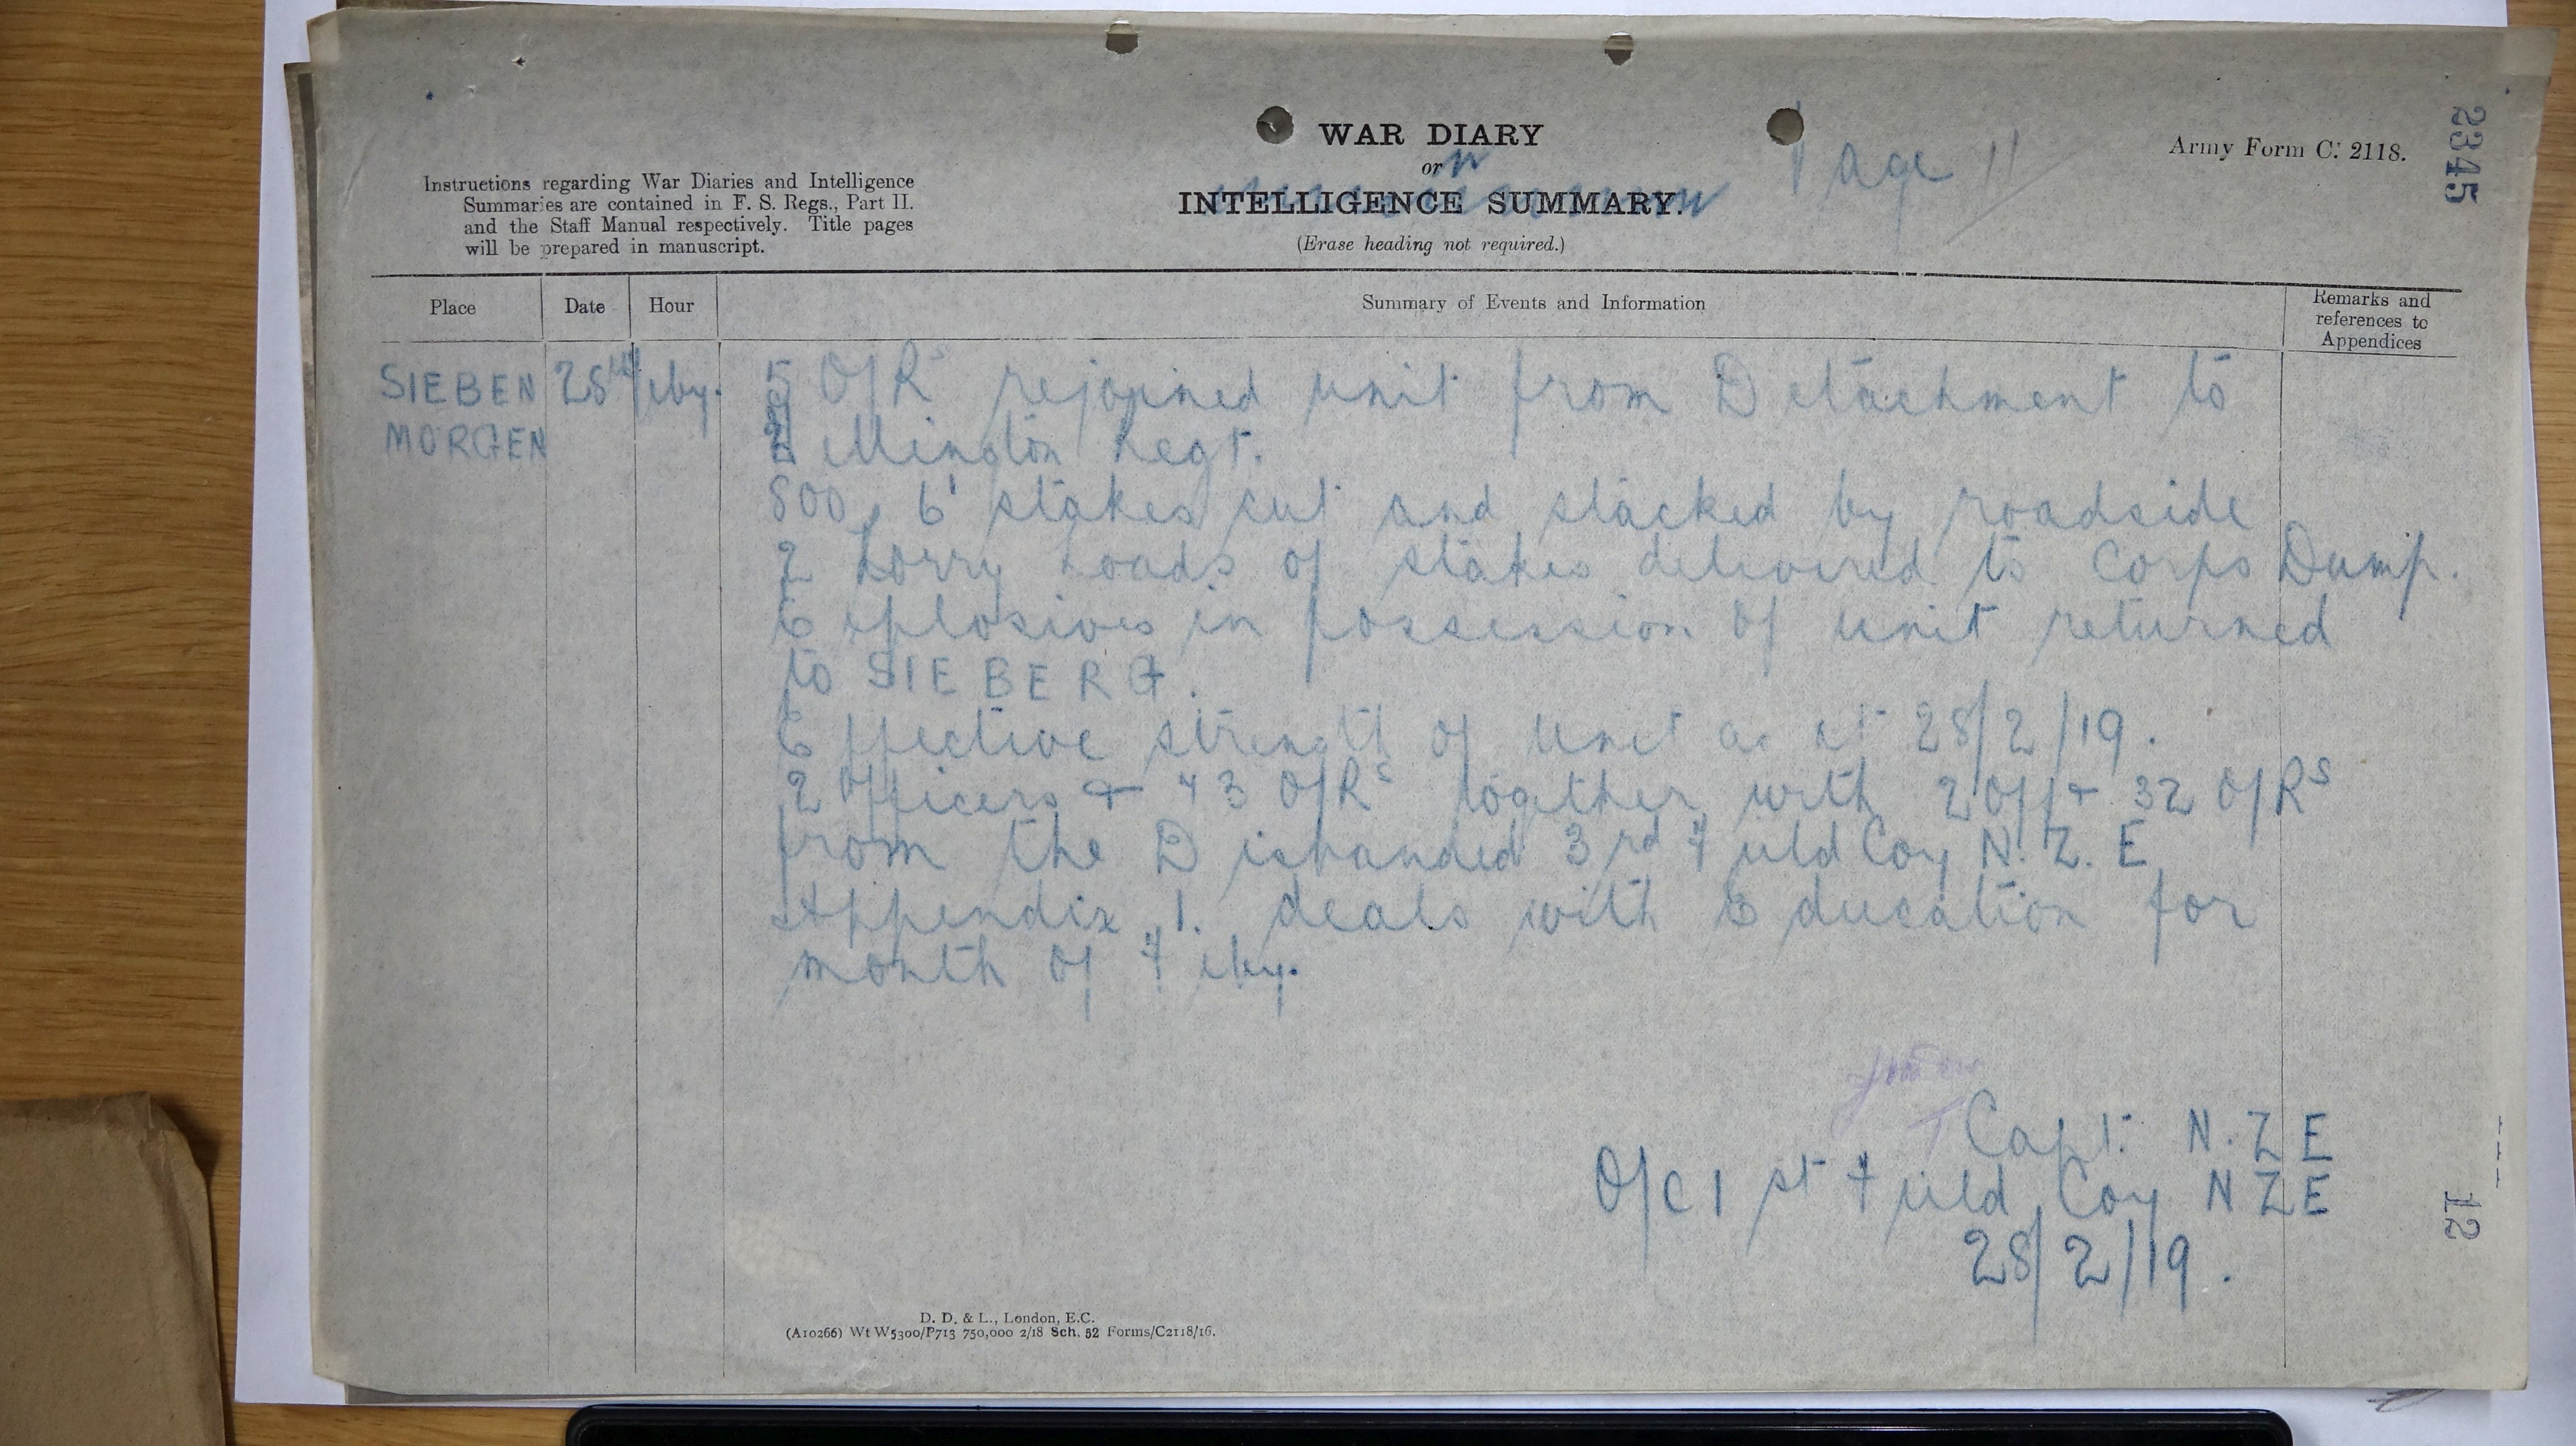 2345
WAR DIARY
or
INTELLIGENCE SUMMARY.
(Erase heading not required.)
Page 11
Army Form C. 2118.
Instructions regarding War Diaries and Intelligence
Summaries are contained in F. S. Regs., Part II.
and the Staff Manual respectively. Title pages
will be prepared in manuscript.
Place
Date
Hour
Summary of Events and Information
Remarks and
references to
Appendices
SIEBEN 28th Feby. 5 O/Rs rejoined unit from Detachment to
MORGEN Wellington Regt.
800, 6' stakes cut and stacked by roadside
2 Lorry Loads of stakes delivered to Corps Dump.
Explosives in possession of unit returned
to SIEBERG.
Effective strength of unit as at 28/2/19.
2 Officers & 43 O/Rs together with 2 Off & 32 O/Rs
from the Disbanded 3rd Field Coy N.Z.E
Appendix 1. deals with Education for
month of Feby.
Capt. N.Z E
O/C 1st Field Coy NZE
28/2/19.
12
D. D. & L., London, E.C.
(A10266) Wt W5300/P713 750,000 2/18 Sch. 52 Forms/C2118/16.